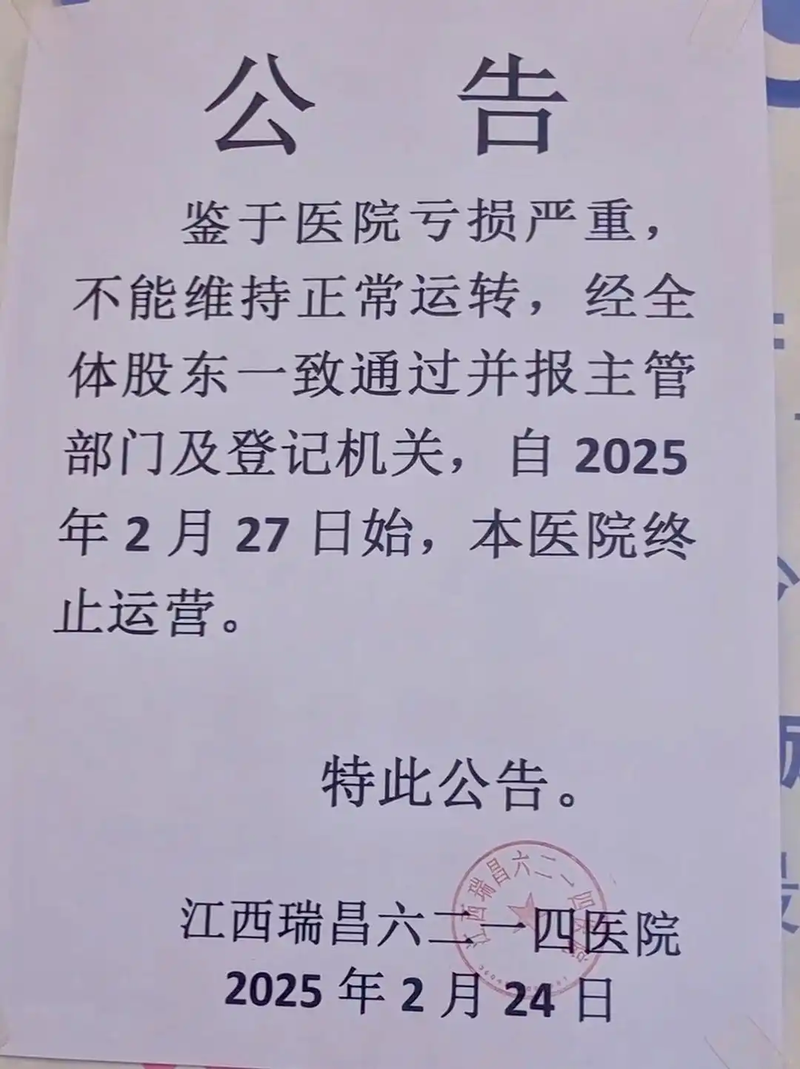 公 告
鉴于医院亏损严重，
不能维持正常运转，经全
体股东一致通过并报主管
部门及登记机关，自 2025
年 2 月 27 日始，本医院终
止运营。
特此公告。
江西瑞昌六二一四医院
2025 年 2 月 24 日
江西瑞昌六二一四医院